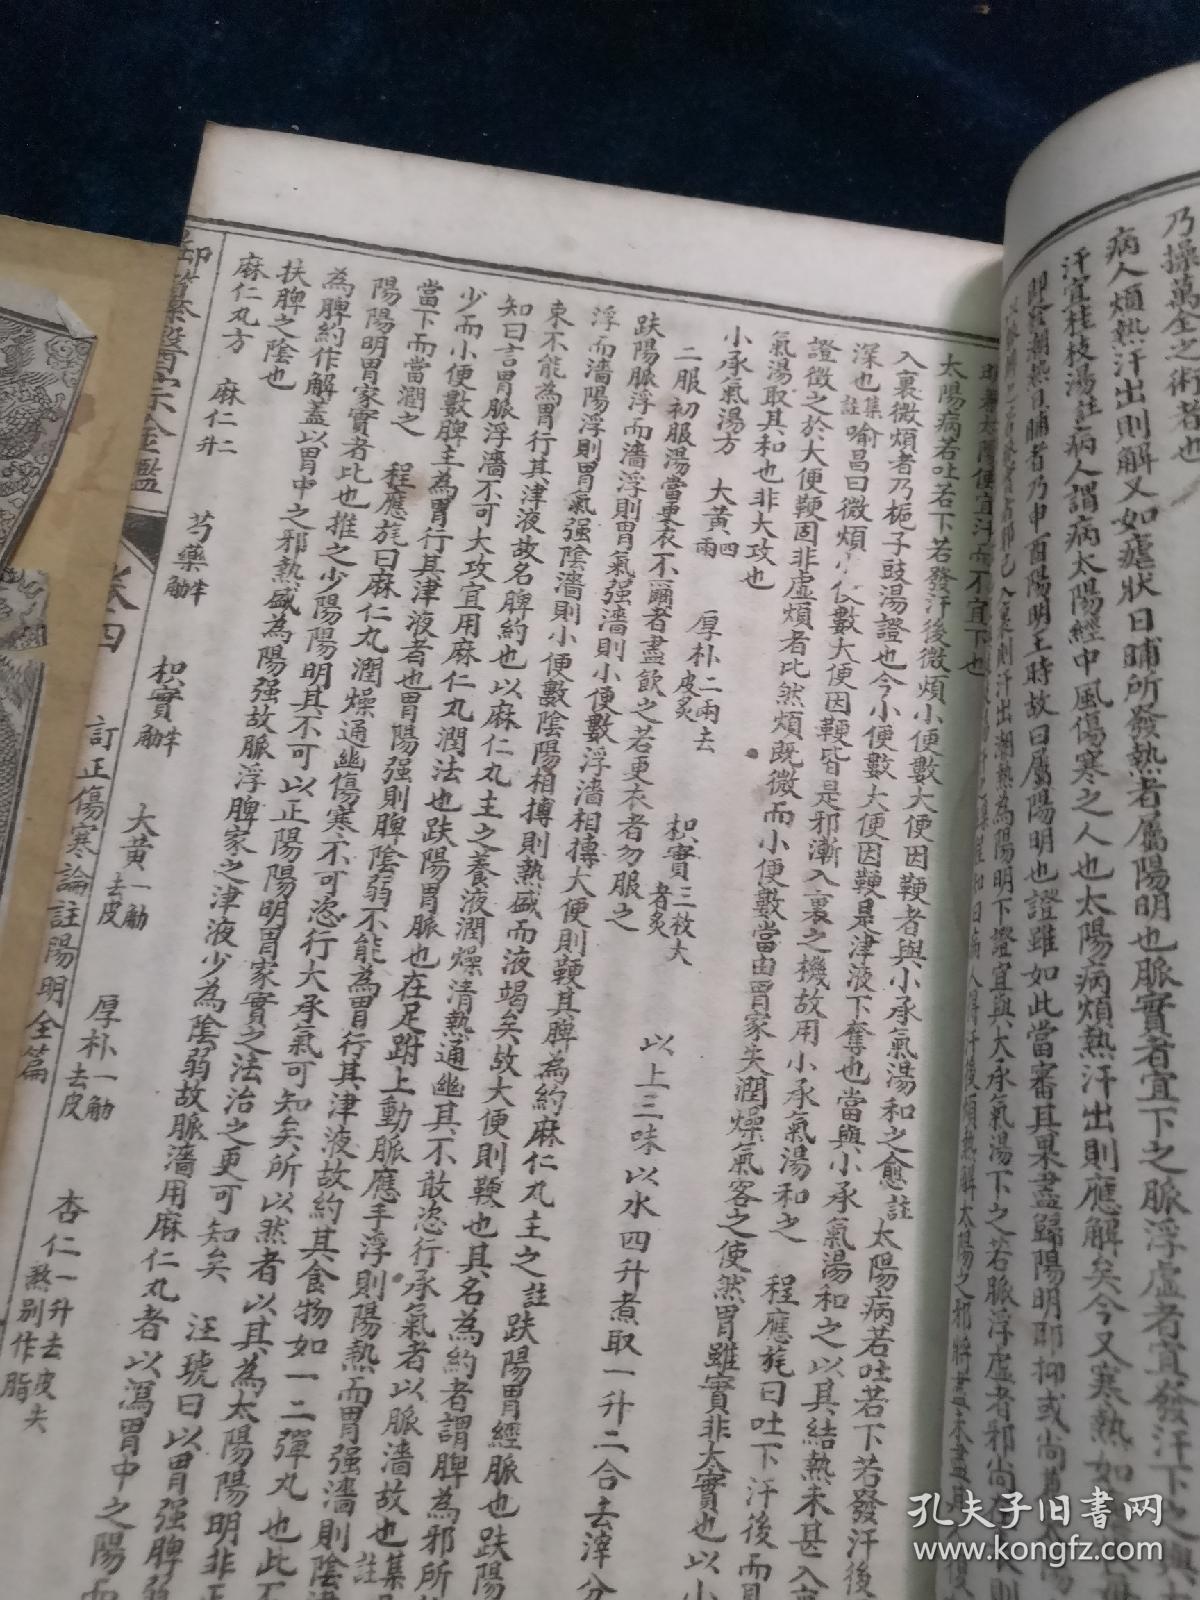 乃操萬全之術者也
病人煩熱汗出則解又如瘧狀日晡所發熱者屬陽明也脈實者宜下之脈浮虛者宜發汗下之與大
汗宜桂枝湯註病人謂病太陽經中風傷寒之人也太陽病煩熱汗出則應解矣今又寒熱如
即發潮熱日晡者乃申酉陽明王時故曰屬陽明也證雖如此當審其果盡歸陽明耶抑或尚
入裏則汗出潮熱為陽明下證宜與大承氣湯下之若脈浮虛者邪尚
明兼太陽便宜汗而不宜下也
太陽病若吐若下若發汗後微煩小便數大便因鞕者與小承氣湯和之愈註太陽病若吐若下若發汗後
入裏微煩者乃梔子豉湯證也今小便數大便因鞕是津液下奪也當與小承氣湯和之以其結熱未甚入
深也集註喻昌曰微煩小便數大便因鞕皆是邪漸入裏之機故用小承氣湯和之 程應旄曰吐下汗後而見
證徵之於大便鞕固非虛煩者比然煩既微而小便數當由胃家失潤燥氣客之使然胃雖實非大實也以小
氣湯取其和也非大攻也
小承氣湯方 大黃四兩 厚朴二兩去皮炙 枳實三枚大者炙 以上三味以水四升煮取一升二合去滓分
二服初服湯當更衣不爾者盡飲之若更衣者勿服之
趺陽脈浮而濇浮則胃氣强濇則小便數浮濇相摶大便則鞕其脾為約麻仁丸主之註趺陽胃經脈也趺陽
浮而濇陽浮則胃氣强陰濇則小便數陰陽相摶則熱盛而液竭矣故大便則鞕也其名為約者謂脾為邪所
束不能為胃行其津液故名脾約也以麻仁丸主之養液潤燥清熱通幽其不敢恣行承氣者以脈濇故也集註
知曰言胃脈浮濇不可大攻宜用麻仁丸潤法也趺陽胃脈也在足趺上動脈應手浮則陽熱而胃强濇則陰
少而小便數脾主為胃行其津液者也胃陽强則脾陰弱不能為胃行其津液故約其食物如一二彈丸也此不
當下而當潤之 程應旄曰麻仁丸潤燥通幽傷寒不可恣行大承氣可知矣所以然者以其為太陽陽明非正
陽陽明胃家實者比也推之少陽陽明其不可以正陽陽明胃家實之法治之更可知矣 汪琥曰以胃强脾弱
為脾約作解蓋以胃中之邪熱盛為陽强故脈浮脾家之津液少為陰弱故脈濇用麻仁丸者以瀉胃中之陽而
扶脾之陰也
麻仁丸方 麻仁二升 芍藥半觔 枳實半觔 大黃一觔去皮 厚朴一觔去皮 杏仁一升去皮尖熬別作脂
御纂醫宗金鑑 卷四 訂正傷寒論註陽明全篇
孔夫子旧书网
www.kongfz.com